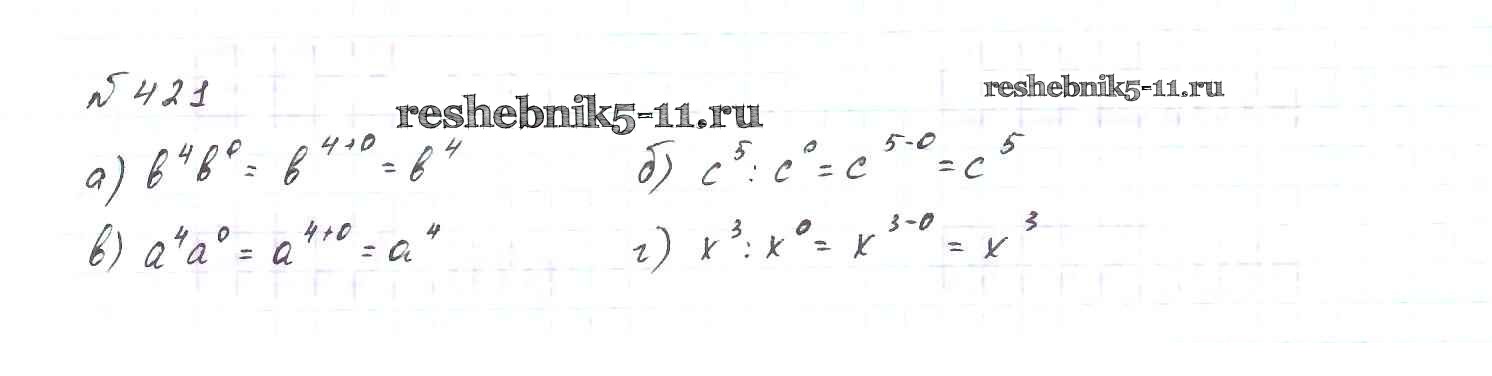 № 421
reshebnik5-11.ru
reshebnik5-11.ru
а) b⁴b⁰ = b⁴⁺⁰ = b⁴
б) c⁵ : c⁰ = c⁵⁻⁰ = c⁵
в) a⁴a⁰ = a⁴⁺⁰ = a⁴
г) x³ : x⁰ = x³⁻⁰ = x³